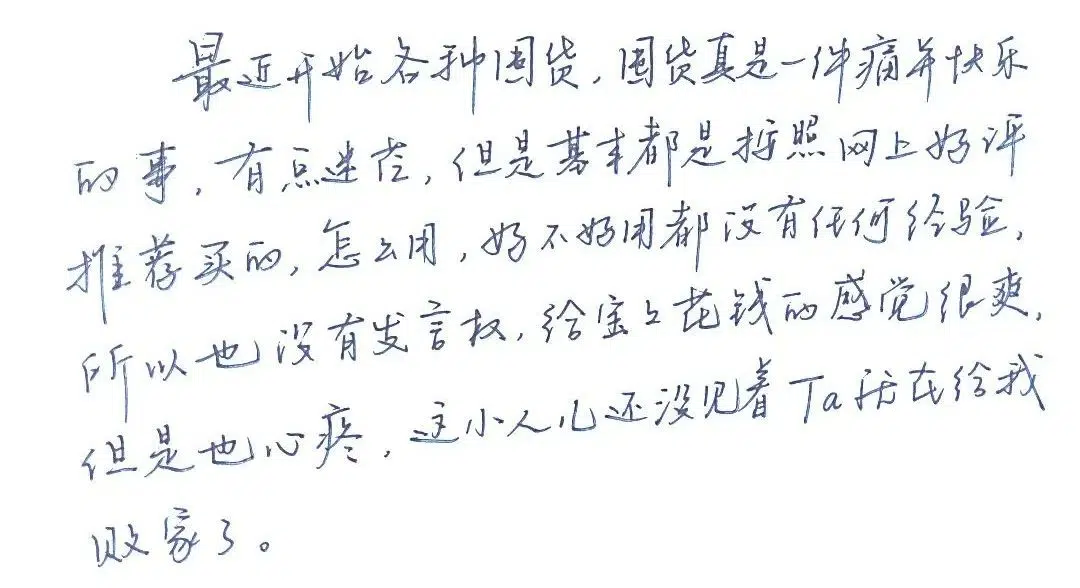 最近开始各种囤货，囤货真是一件痛并快乐
的事，有点迷茫，但是基本都是按照网上好评
推荐买的，怎么用，好不好用都没有任何经验，
所以也没有发言权，给宝宝花钱的感觉很爽，
但是也心疼，这小人儿还没见着Ta就在给我
败家了。